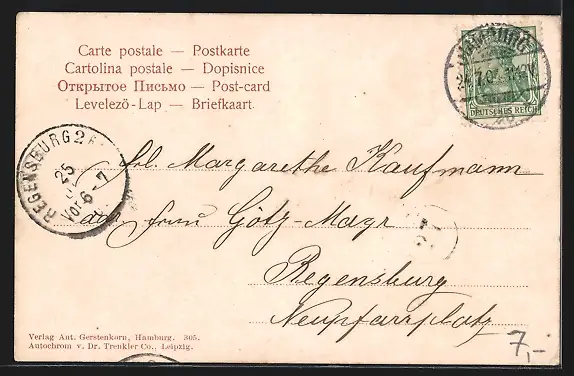 Carte postale — Postkarte
Cartolina postale — Dopisnice
Открытое Письмо — Post-card
Levelező-Lap — Briefkaart
HAMBURG
24.7.0
DEUTSCHES REICH
REGENSBURG 2
25
7
Vor. 6-7
Frl. Margarethe Kaufmann
Frau Götz-Mayr
Regensburg
Neupfarrplatz
7,-
Verlag Ant. Gerstenkorn, Hamburg. 305.
Autochrom v. Dr. Trenkler Co., Leipzig.